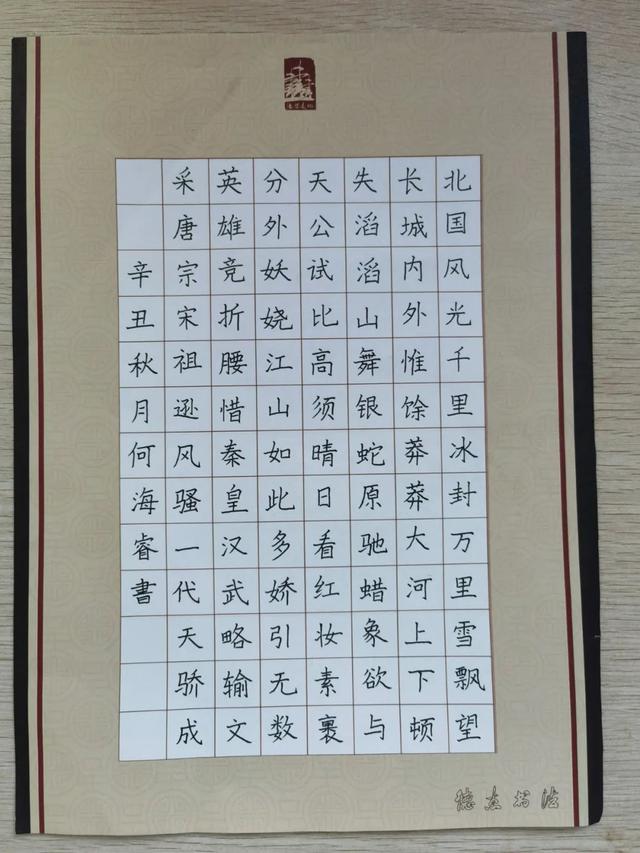 北国风光千里冰封万里雪飘望
长城内外惟馀莽莽大河上下顿
失滔滔山舞银蛇原驰蜡象欲与
天公试比高须晴日看红妆素裹
分外妖娆江山如此多娇引无数
英雄竞折腰惜秦皇汉武略输文
采唐宗宋祖逊风骚一代天骄成
辛丑秋月何海睿書
德友书法